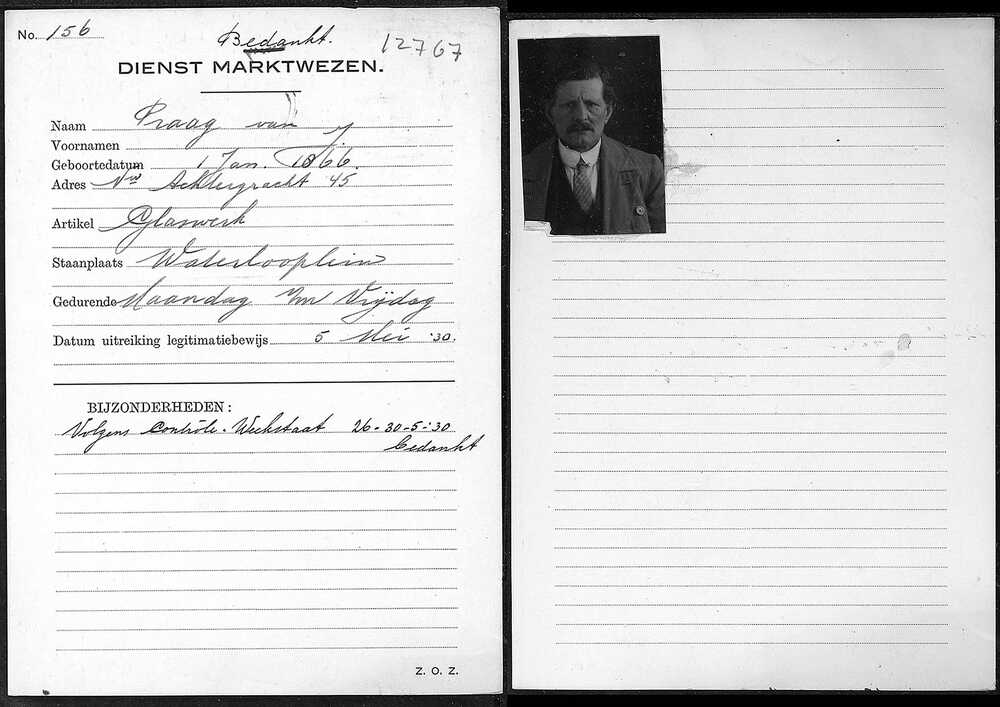 No. 156
Bedankt.
12767
DIENST MARKTWEZEN.
Naam Praag van
Voornamen J
Geboortedatum 1 Jan. 1866.
Adres Nw Achtergracht 45
Artikel Glaswerk
Staanplaats Waterlooplein
Gedurende Maandag t/m Vrijdag
Datum uitreiking legitimatiebewijs 5 Mei '30.
BIJZONDERHEDEN:
Volgens Contrôle. Weekstaat 26-30-5-'30
Bedankt
Z. O. Z.